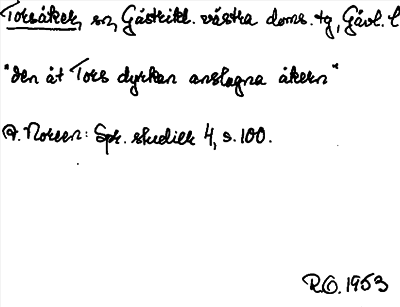 Torsåker, sn, Gästrikl. västra doms. tg, Gävl. l
"den åt Tors dyrkan anslagna åkern"
A. Noreen: Spr. studier 4, s. 100.
R.O. 1953